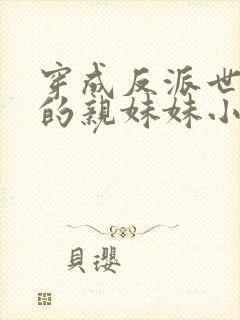 穿成反派世
的親妹妹小
貝瓔